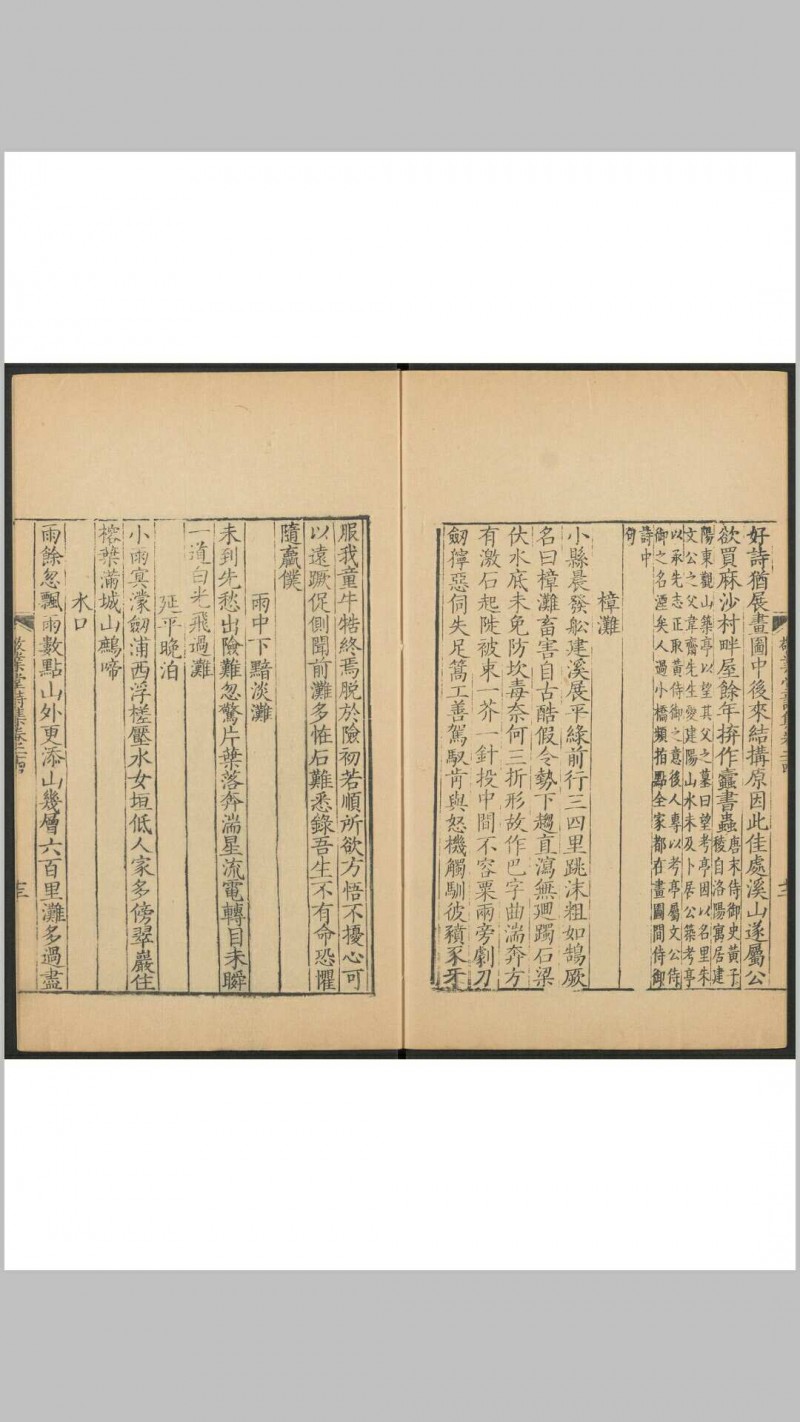 好詩猶展畫圖中後來結搆原因此佳處溪山遂屬公
欲買麻沙村畔屋餘年拚作蠧書蟲唐末侍御史黃子
稜自洛陽寓居建
陽東觀山築亭以望其父之墓曰望考亭因以名里朱
文公之父韋齋先生愛建陽山水未及卜居公築考亭
以承先志正取黃侍御之意後人專以考亭屬文公侍
御之名湮矣人過小橋頻指點全家都在畫圖間侍御
詩中
句
樟灘
小縣晨發船建溪展平綠前行三四里跳沫粗如鵠厥
名曰樟灘畜害自古酷假令勢下趨直瀉無廻躅石梁
伏水底未免防坎毒奈何三折形故作巴字曲湍奔方
有激石起陡被束一芥一針投中間不容粟兩旁劇刀
劒獰惡伺失足篙工善駕馭肯與怒機觸馴彼豶豕牙
敬業堂詩集卷二十四
十三
服我童牛牿終焉脫於險初若順所欲方悟不擾心可
以遠蹶促側聞前灘多恠石難悉錄吾生不有命恐懼
隨羸僕
雨中下黯淡灘
未到先愁出險難忽驚片葉落奔湍星流電轉目未瞬
一道白光飛過灘
延平晚泊
小雨冥濛劒浦西浮槎壓水女垣低人家多傍翠巖住
榕葉滿城山鷓啼
水口
雨餘忽飄雨數點山外更添山幾層六百里灘多過盡
敬業堂詩集卷二十四
十三